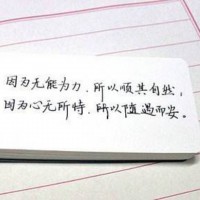 因为无能为力、所以顺其自然，
因为心无所恃、所以随遇而安。